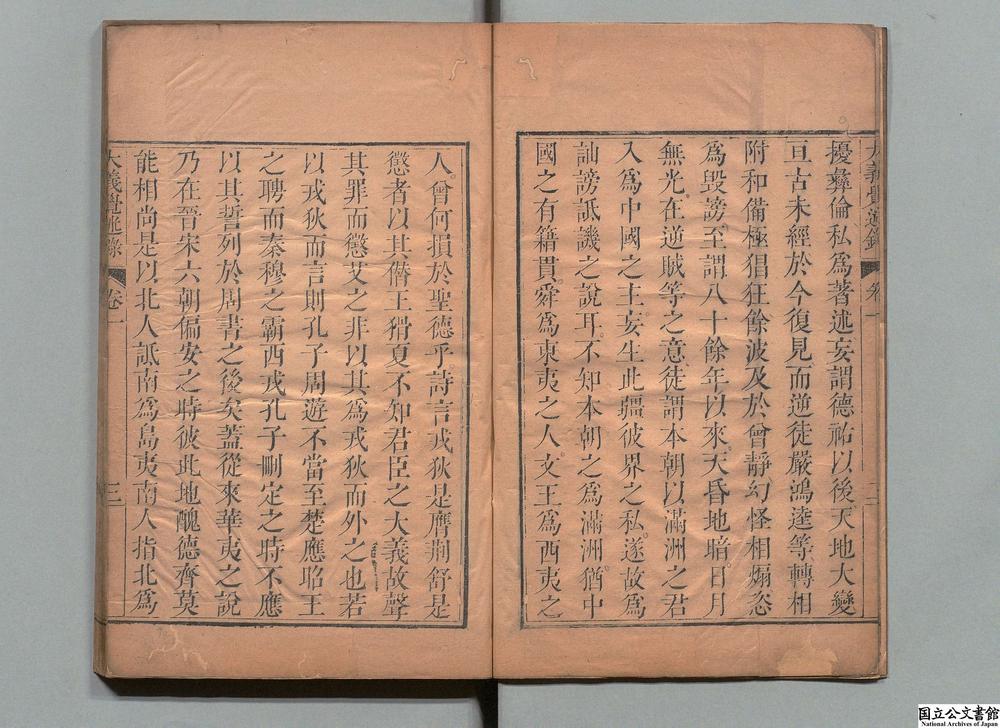 擾彝倫私爲著述妄謂德祐以後天地大變
亘古未經於今復見而逆徒嚴鴻逵等轉相
附和備極猖狂餘波及於曾靜幻怪相煽恣
爲毀謗至謂八十餘年以來天昏地暗日月
無光在逆賊等之意徒謂本朝以滿洲之君
入爲中國之主妄生此疆彼界之私遂故爲
訕謗詆譏之說耳不知本朝之爲滿洲猶中
國之有籍貫舜爲東夷之人文王爲西夷之
人曾何損於聖德乎詩言戎狄是膺荆舒是
懲者以其僭王猾夏不知君臣之大義故聲
其罪而懲艾之非以其爲戎狄而外之也若
以戎狄而言則孔子周遊不當至楚應昭王
之聘而秦穆之霸西戎孔子刪定之時不應
以其誓列於周書之後矣蓋從來華夷之說
乃在晉宋六朝偏安之時彼此地醜德齊莫
能相尚是以北人詆南爲島夷南人指北爲
大義覺迷錄 卷一 三
国立公文書館
National Archives of Japan